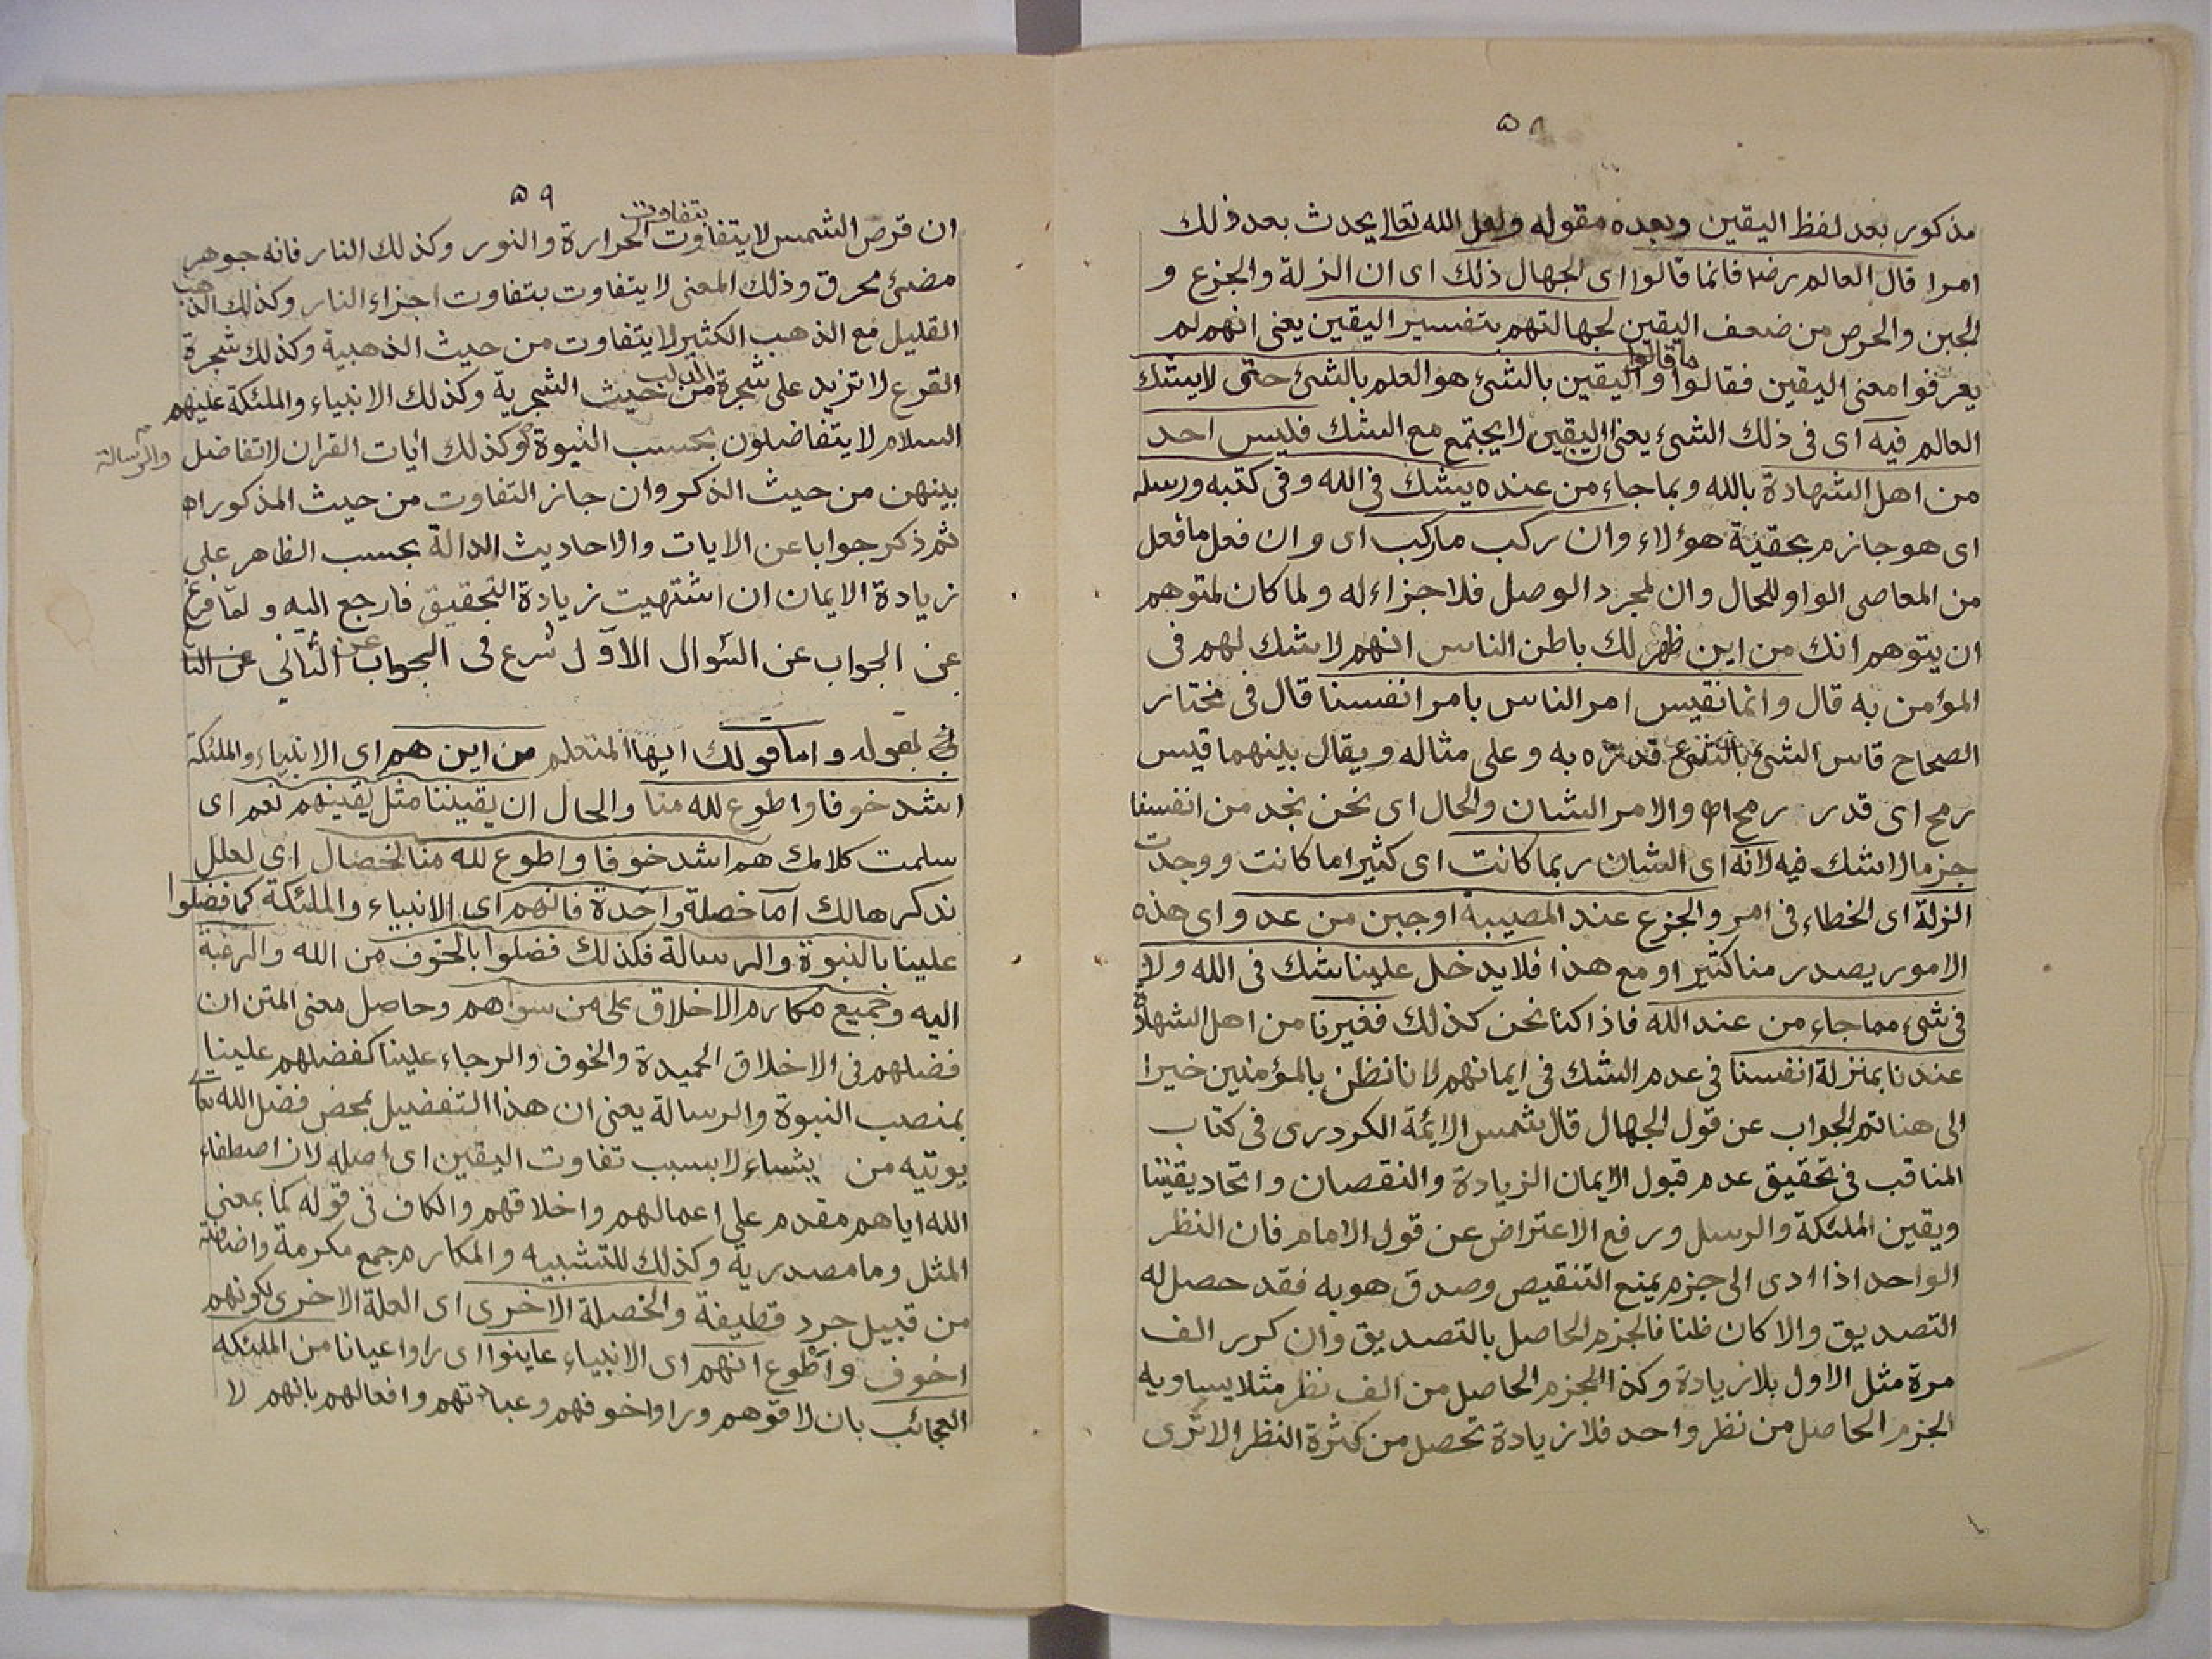 ٥٨
مذكور بعد لفظ اليقين وبعده مقوله ولعل الله تعالى يحدث بعد ذلك
امرا قال العالم رضه فانما قالوا اى الجهال ذلك اى ان الزلة والجزع و
الجبن والحرص من ضعف اليقين لجهالتهم بتفسير اليقين يعنى انهم لم
يعرفوا معنى اليقين فقالوا ما قالوا واليقين بالشئ هو العلم بالشئ حتى لا يشك
العالم فيه اى فى ذلك الشئ يعنى ان اليقين لا يجتمع مع الشك فليس احد
من اهل الشهادة بالله وبما جاء من عنده يشك فى الله وفى كتبه ورسله
اى هو جازم بحقية هؤلاء وان ركب ما ركب اى وان فعل ما فعل
من المعاصى الواو للحال وان لمجرد الوصل فلا جزاء له ولما كان لمتوهم
ان يتوهم انك من اين ظهر لك باطن الناس انهم لا شك لهم فى
المؤمن به قال وانما نقيس امر الناس بامر انفسنا قال فى مختار
الصحاح قاس الشئ بالشئ قدره به وعلى مثاله ويقال بينهما قيس
رمح اى قدر رمح اه والامر الشان والحال اى نحن نجد من انفسنا
جزما لا شك فيه لانه اى الشان ربما كانت اى كثيرا ما كانت ووجدت
الزلة اى الخطاء فى امر والجزع عند المصيبة او جبن من عدو اى هذه
الامور يصدر منا كثيرا ومع هذا فلا يدخل علينا شك فى الله ولا
فى شئ مما جاء من عند الله فاذا كنا نحن كذلك فغيرنا من اهل الشهادة
عندنا بمنزلة انفسنا فى عدم الشك فى ايمانهم لانا نظن بالمؤمنين خيرا
الى هنا تم الجواب عن قول الجهال قال شمس الائمة الكردرى فى كتاب
المناقب فى تحقيق عدم قبول الايمان الزيادة والنقصان واتحاد يقيننا
ويقين الملئكة والرسل ورفع الاعتراض عن قول الامام فان النظر
الواحد اذا ادى الى جزم يمنع التنقيص وصدق هو به فقد حصل له
التصديق والا كان ظنا فالجزم الحاصل بالتصديق وان كرر الف
مرة مثل الاول بلا زيادة وكذا الجزم الحاصل من الف نظر مثلا يساويه
الجزم الحاصل من نظر واحد فلا زيادة تحصل من كثرة النظر الا ترى
٥٩
ان قرص الشمس لا يتفاوت بتفاوت الحرارة والنور وكذلك النار فانه جوهر
مضئ محرق وذلك المعنى لا يتفاوت بتفاوت اجزاء النار وكذلك الذهب
القليل مع الذهب الكثير لا يتفاوت من حيث الذهبية وكذلك شجرة
القرع لا تزيد على شجرة الدلب من حيث الشجرية وكذلك الانبياء والملئكة عليهم
السلام لا يتفاضلون بحسب النبوة والرسالة وكذلك ايات القران لا تفاضل
بينهن من حيث الذكر وان جاز التفاوت من حيث المذكور اه
ثم ذكر جوابا عن الايات والاحاديث الدالة بحسب الظاهر على
زيادة الايمان ان اشتهيت زيادة التحقيق فارجع اليه ولما فرغ
عن الجواب عن السؤال الاول شرع فى الجواب عن الثانى
بقوله واما قولك ايها المتعلم من اين هم اى الانبياء والملئكة
اشد خوفا واطوع لله منا والحال ان يقيننا مثل يقينهم نعم اى
سلمت كلامك هم اشد خوفا واطوع لله منا لخصال اى لعلل
نذكرها لك اما خصلة واحدة فانهم اى الانبياء والملئكة كما فضلوا
علينا بالنبوة والرسالة فكذلك فضلوا بالخوف من الله والرغبة
اليه وجميع مكارم الاخلاق على من سواهم وحاصل معنى المتن ان
فضلهم فى الاخلاق الحميدة والخوف والرجاء علينا كفضلهم علينا
بمنصب النبوة والرسالة يعنى ان هذا التفضيل بمحض فضل الله تعالى
يوتيه من يشاء لا بسبب تفاوت اليقين اى اصله لان اصطفاء
الله اياهم مقدم على اعمالهم واخلاقهم والكاف فى قوله كما بمعنى
المثل وما مصدرية وكذلك للتشبيه والمكارم جمع مكرمة واضافته
من قبيل جرد قطيفة والخصلة الاخرى اى العلة الاخرى لكونهم
اخوف واطوع انهم اى الانبياء عاينوا اى راوا عيانا من الملئكة
العجائب بان لاقوهم وراوا خوفهم وعباداتهم وافعالهم بانهم لا